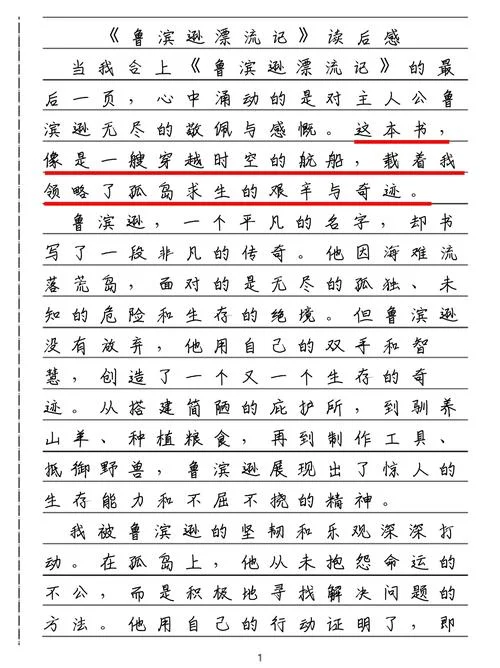 《鲁滨逊漂流记》读后感
当我合上《鲁滨逊漂流记》的最
后一页，心中涌动的是对主人公鲁
滨逊无尽的敬佩与感慨。这本书，
像是一艘穿越时空的航船，载着我
领略了孤岛求生的艰辛与奇迹。
鲁滨逊，一个平凡的名字，却书
写了一段非凡的传奇。他因海难流
落荒岛，面对的是无尽的孤独、未
知的危险和生存的绝境。但鲁滨逊
没有放弃，他用自己的双手和智
慧，创造了一个又一个生存的奇
迹。从搭建简陋的庇护所，到驯养
山羊、种植粮食，再到制作工具、
抵御野兽，鲁滨逊展现出了惊人的
生存能力和不屈不挠的精神。
我被鲁滨逊的坚韧和乐观深深打
动。在孤岛上，他从未抱怨命运的
不公，而是积极地寻找解决问题的
方法。他用自己的行动证明了，即
1